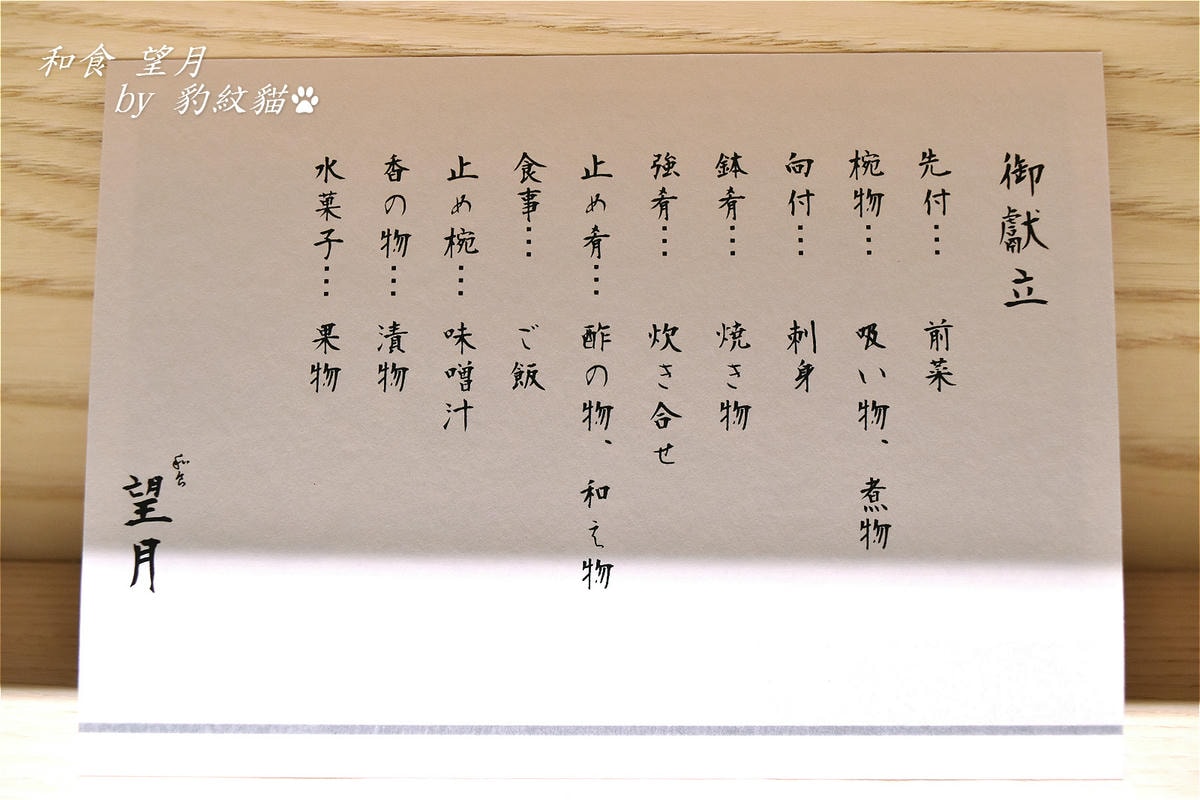 和食 望月
by 豹紋貓
御献立
先付… 前菜
椀物… 吸い物、煮物
向付… 刺身
鉢肴… 焼き物
強肴… 炊き合せ
止め肴… 酢の物、和え物
食事… ご飯
止め椀… 味噌汁
香の物… 漬物
水菓子… 果物
和食
望月